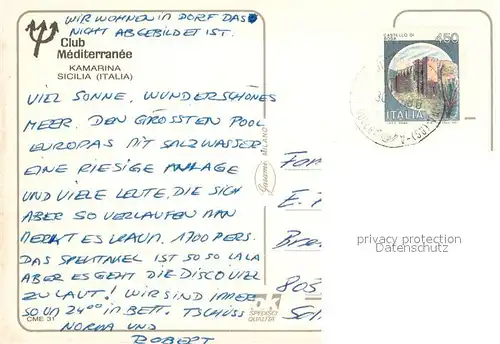 WIR WOHNEN IN DORF DAS
NICHT ABGEBILDET IST.
Club
Méditerranée
KAMARINA
SICILIA (ITALIA)
VIEL SONNE, WUNDERSCHÖNES
MEER. DEN GRÖSSTEN POOL
EUROPAS MIT SALZWASSER
EINE RIESIGE ANLAGE
UND VIELE LEUTE, DIE SICH
ABER SO VERLAUFEN MAN
MERKT ES KAUM. 1700 PERS.
DAS SPEKTAKEL IST SO SO LALA
ABER ES GEHT DIE DISCO VIEL
ZU LAUT! WIR SIND IMMER
SO UM 24⁰⁰ IN BETT. TSCHÜSS
NORMA UND
ROBERT
CME 31
MILANO
CASTELLO DI
450
ITALIA
Fam
E.
805
privacy protection
Datenschutz